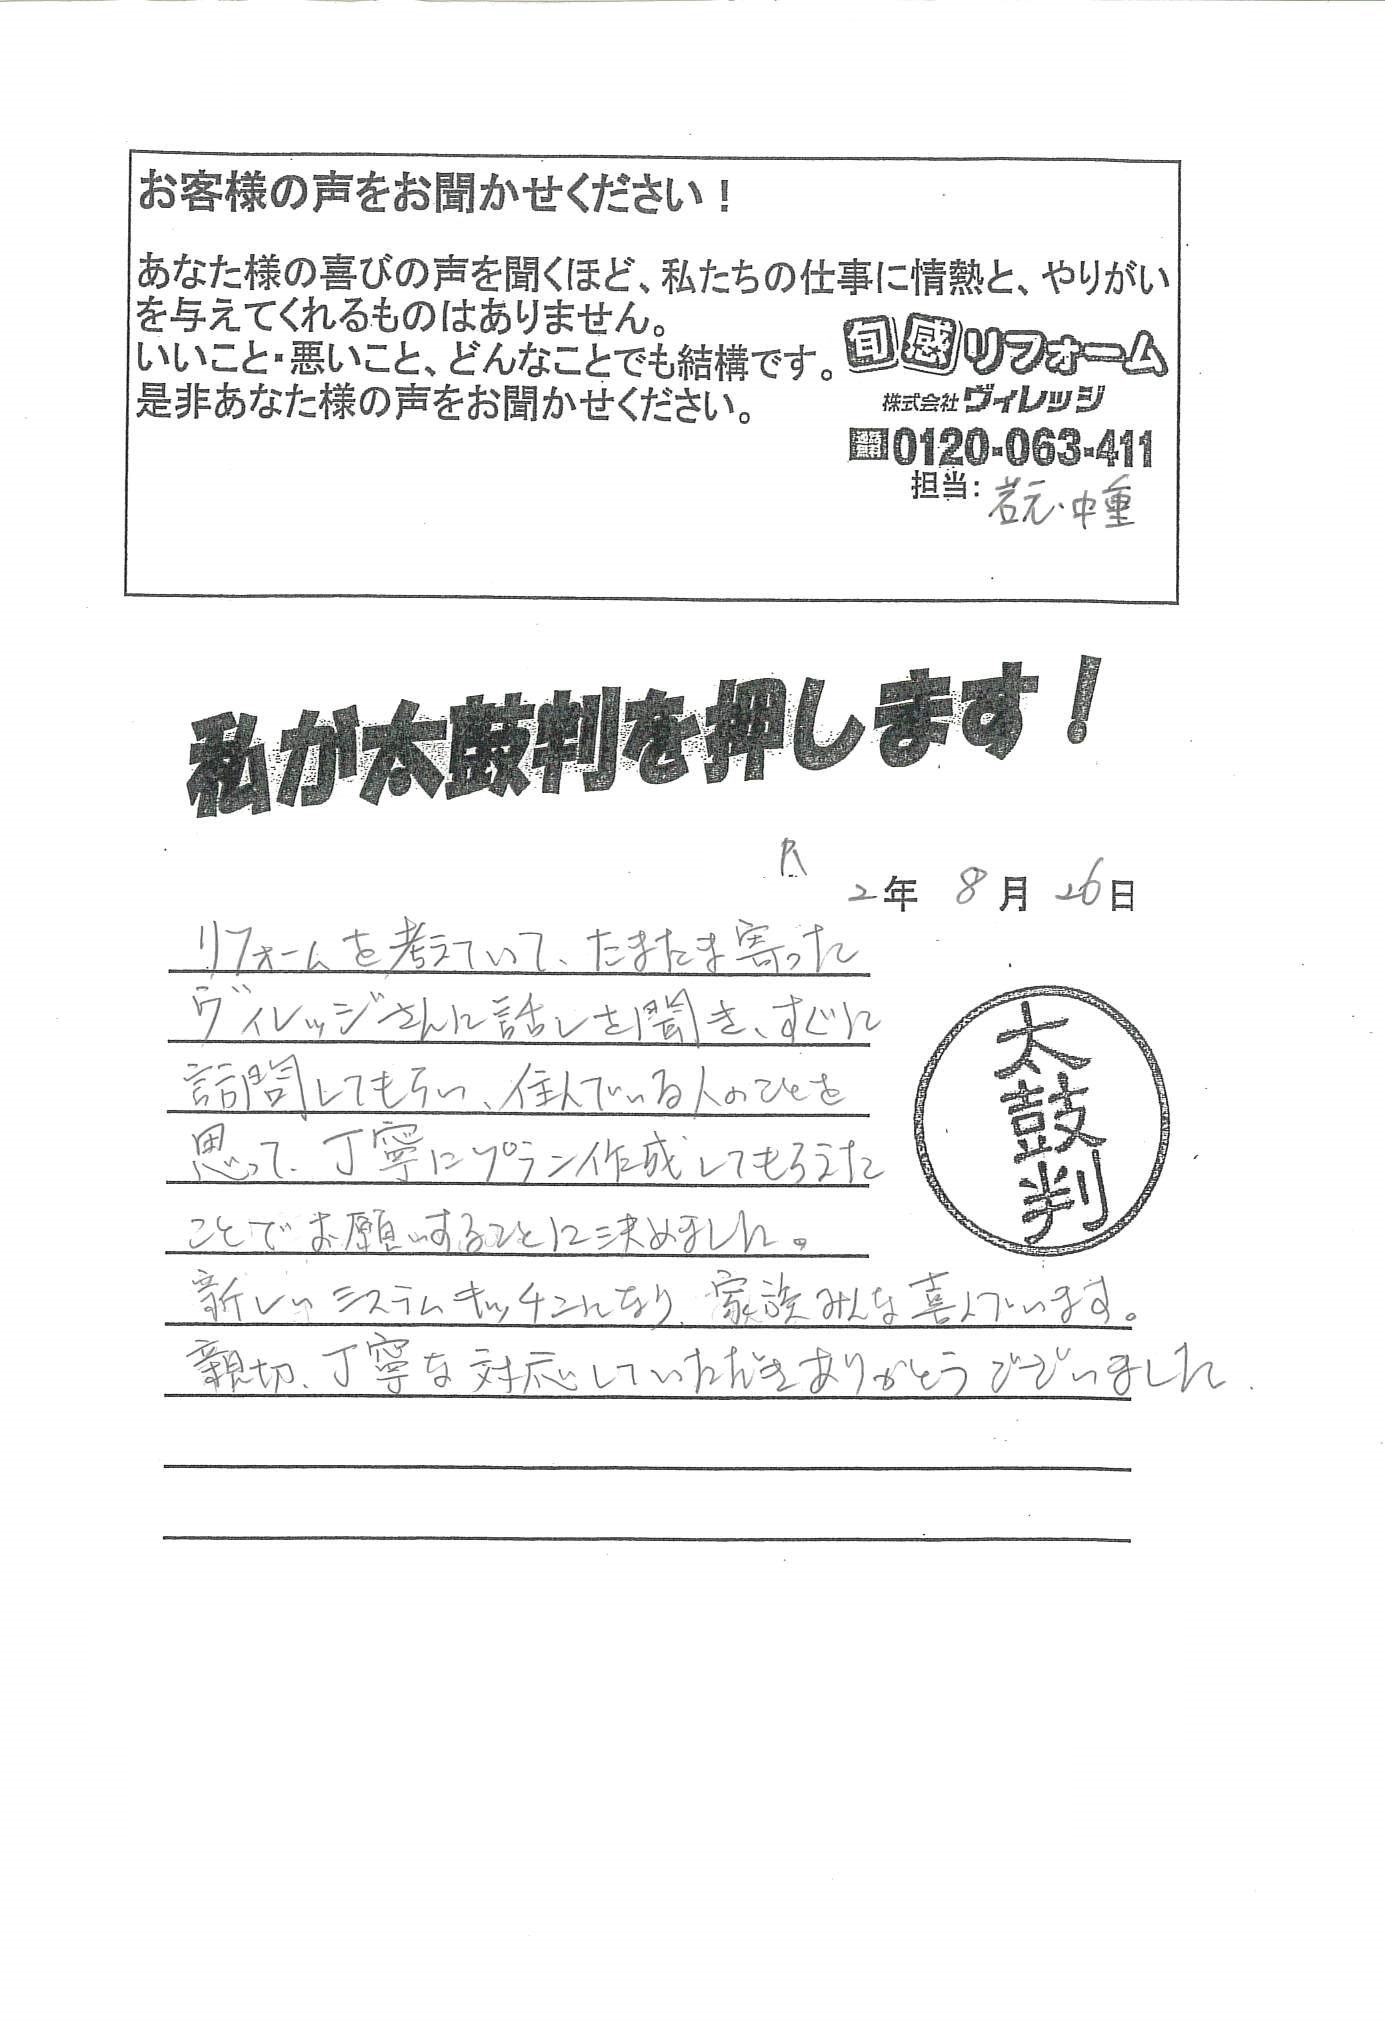 お客様の声をお聞かせください！
あなた様の喜びの声を聞くほど、私たちの仕事に情熱と、やりがい
を与えてくれるものはありません。
いいこと・悪いこと、どんなことでも結構です。
是非あなた様の声をお聞かせください。
旬感リフォーム
株式会社ヴィレッジ
0120-063-411
担当：岩元・中重
私が太鼓判を押します！
R2年 8月 26日
リフォームを考えていて、たまたま寄った
ヴィレッジさんに話しを聞き、すぐに
訪問してもらい、住んでいる人のことを
思って、丁寧にプラン作成してもらえた
ことでお願いすることに決めました。
太鼓判
新しいシステムキッチンになり、家族みんな喜んでいます。
親切、丁寧な対応していただきありがとうございました.